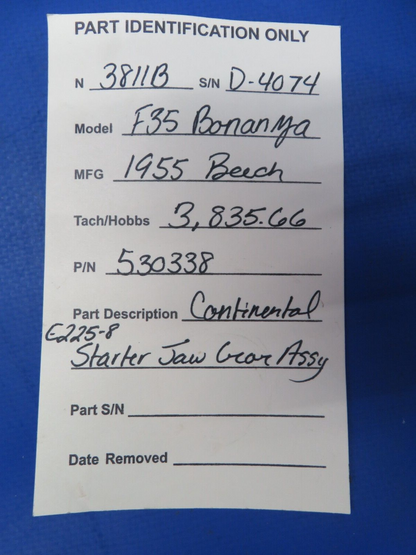 PART IDENTIFICATION ONLY
N 3811B S/N D-4074
Model F35 Bonanza
MFG 1955 Beech
Tach/Hobbs 3,835.66
P/N 530338
Part Description Continental
E225-8
Starter Jaw Gear Assy
Part S/N
Date Removed